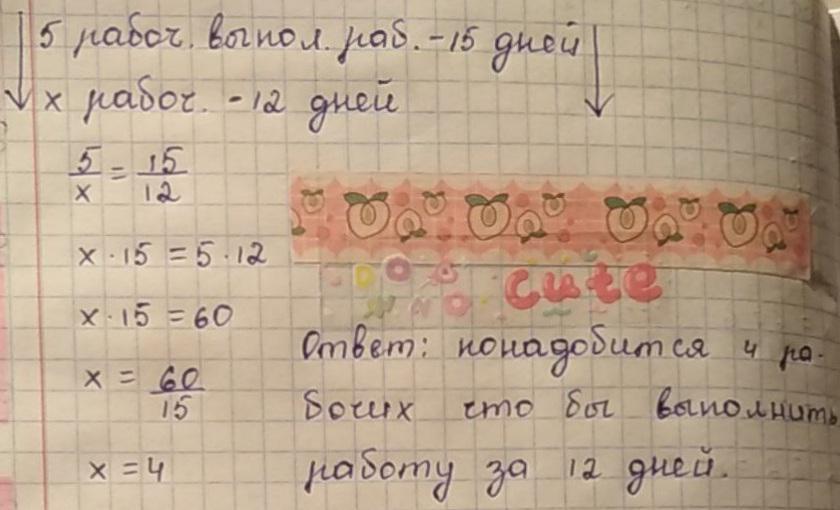 5 рабоч. выпол. раб. - 15 дней
х рабоч. - 12 дней
5/х = 15/12
х · 15 = 5 · 12
х · 15 = 60
х = 60/15
х = 4
cute
Ответ: понадобится 4 ра-
бочих что бы выполнить
работу за 12 дней.